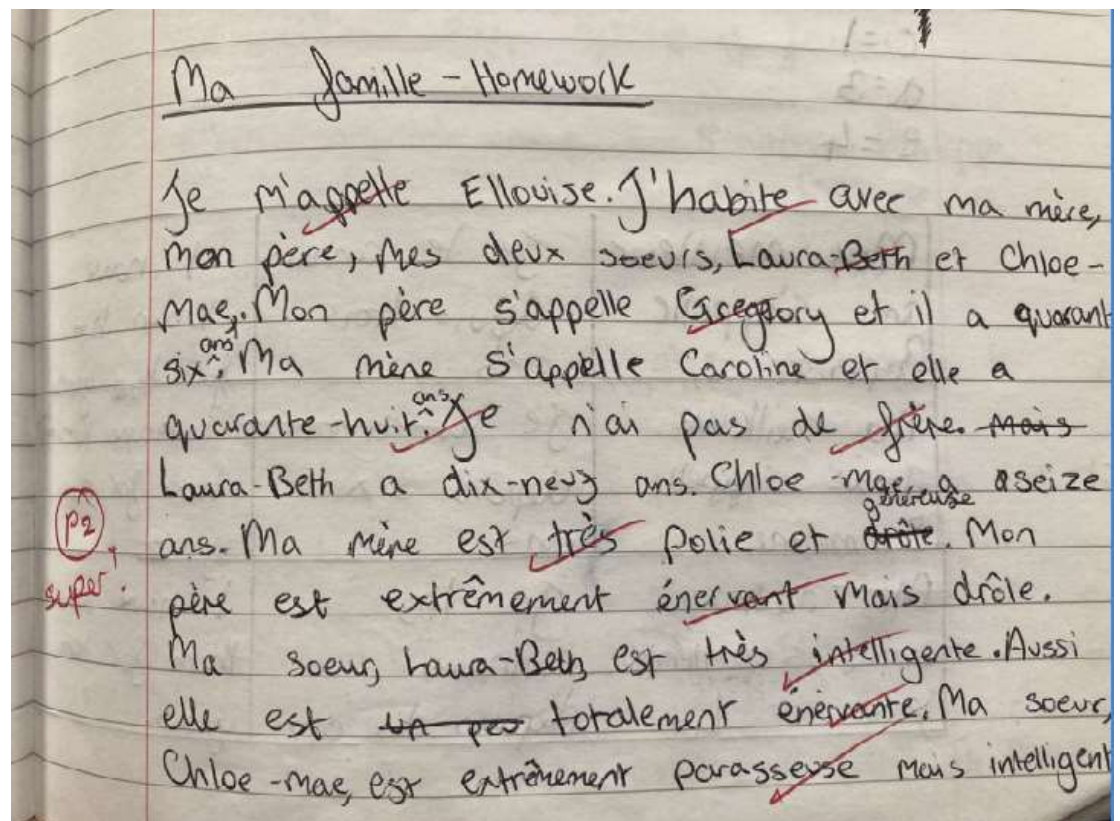 Ma famille - Homework
Je m'appelle Ellouise. J'habite avec ma mère,
mon père, mes deux soeurs, Laura-Beth et Chloe-
Mae. Mon père s'appelle Gregory et il a quarant
six ans. Ma mène s'appelle Caroline et elle a
quarante-huit ans. Je n'ai pas de frère. Mais
Laura-Beth a dix-neuf ans. Chloe-Mae, a seize
ans. Ma mène est très polie et drôle généreuse. Mon
P2
super!
père est extrêmement énervant mais drôle.
Ma soeur, Laura-Beth, est très intelligente. Aussi
elle est un peu totalement énervante. Ma soeur,
Chloe-Mae, est extrêmement parasseuse mais intelligent